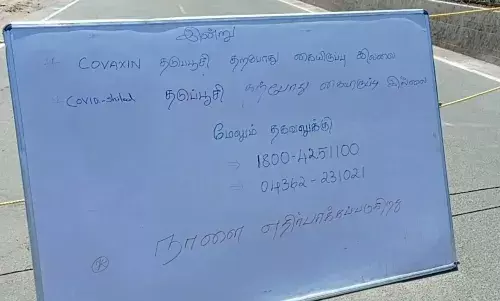 இன்று
COVAXIN தடுப்பூசி தற்போது கையிருப்பு இல்லை
Covid-shield தடுப்பூசி தற்போது கையிருப்பு இல்லை
மேலும் தகவலுக்கு
→ 1800-4251100
→ 04362-231021
நாளை எதிர்பார்க்கப்படுகிறது